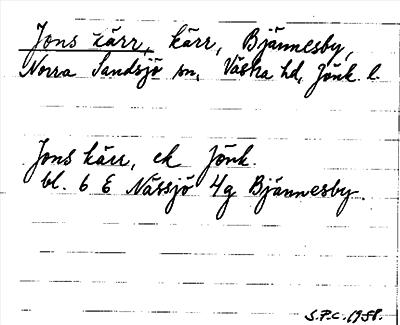 Jons kärr, kärr, Bjännesby,
Norra Sandsjö sn, Västra hd, Jönk. l.
Jons kärr, ek Jönk.
bl. 6 E Nässjö 4g Bjännesby.
S.P.C. 1958.